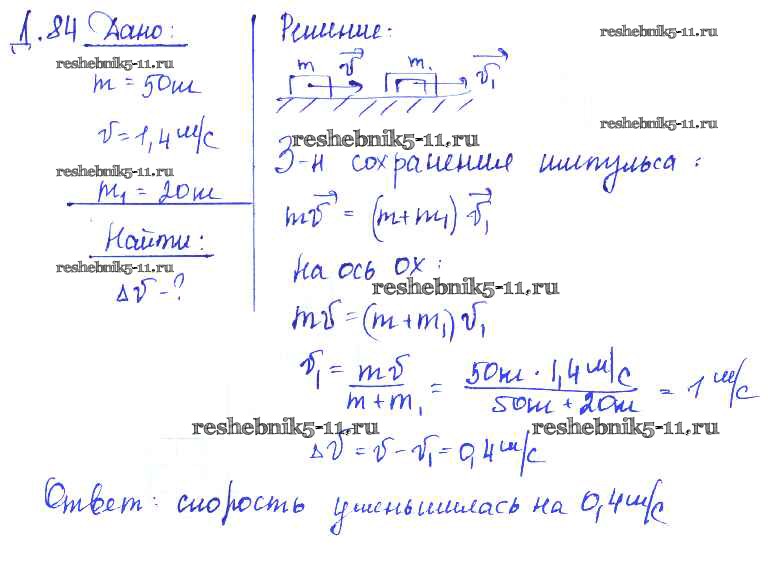 Д.84 Дано:
reshebnik5-11.ru
m = 50т
v = 1,4 м/с
reshebnik5-11.ru
m₁ = 20т
Найти:
reshebnik5-11.ru
Δv - ?
Решение:
reshebnik5-11.ru
m v⃗ m. v⃗₁
reshebnik5-11.ru
reshebnik5-11.ru
З-н сохранения импульса:
mv⃗ = (m+m₁) v⃗₁
на ось ОХ:
reshebnik5-11.ru
mv = (m+m₁)v₁
v₁ = mv / (m+m₁) = 50т · 1,4 м/с / (50т + 20т) = 1 м/с
reshebnik5-11.ru reshebnik5-11.ru
Δv = v - v₁ = 0,4 м/с
Ответ: скорость уменьшилась на 0,4 м/с